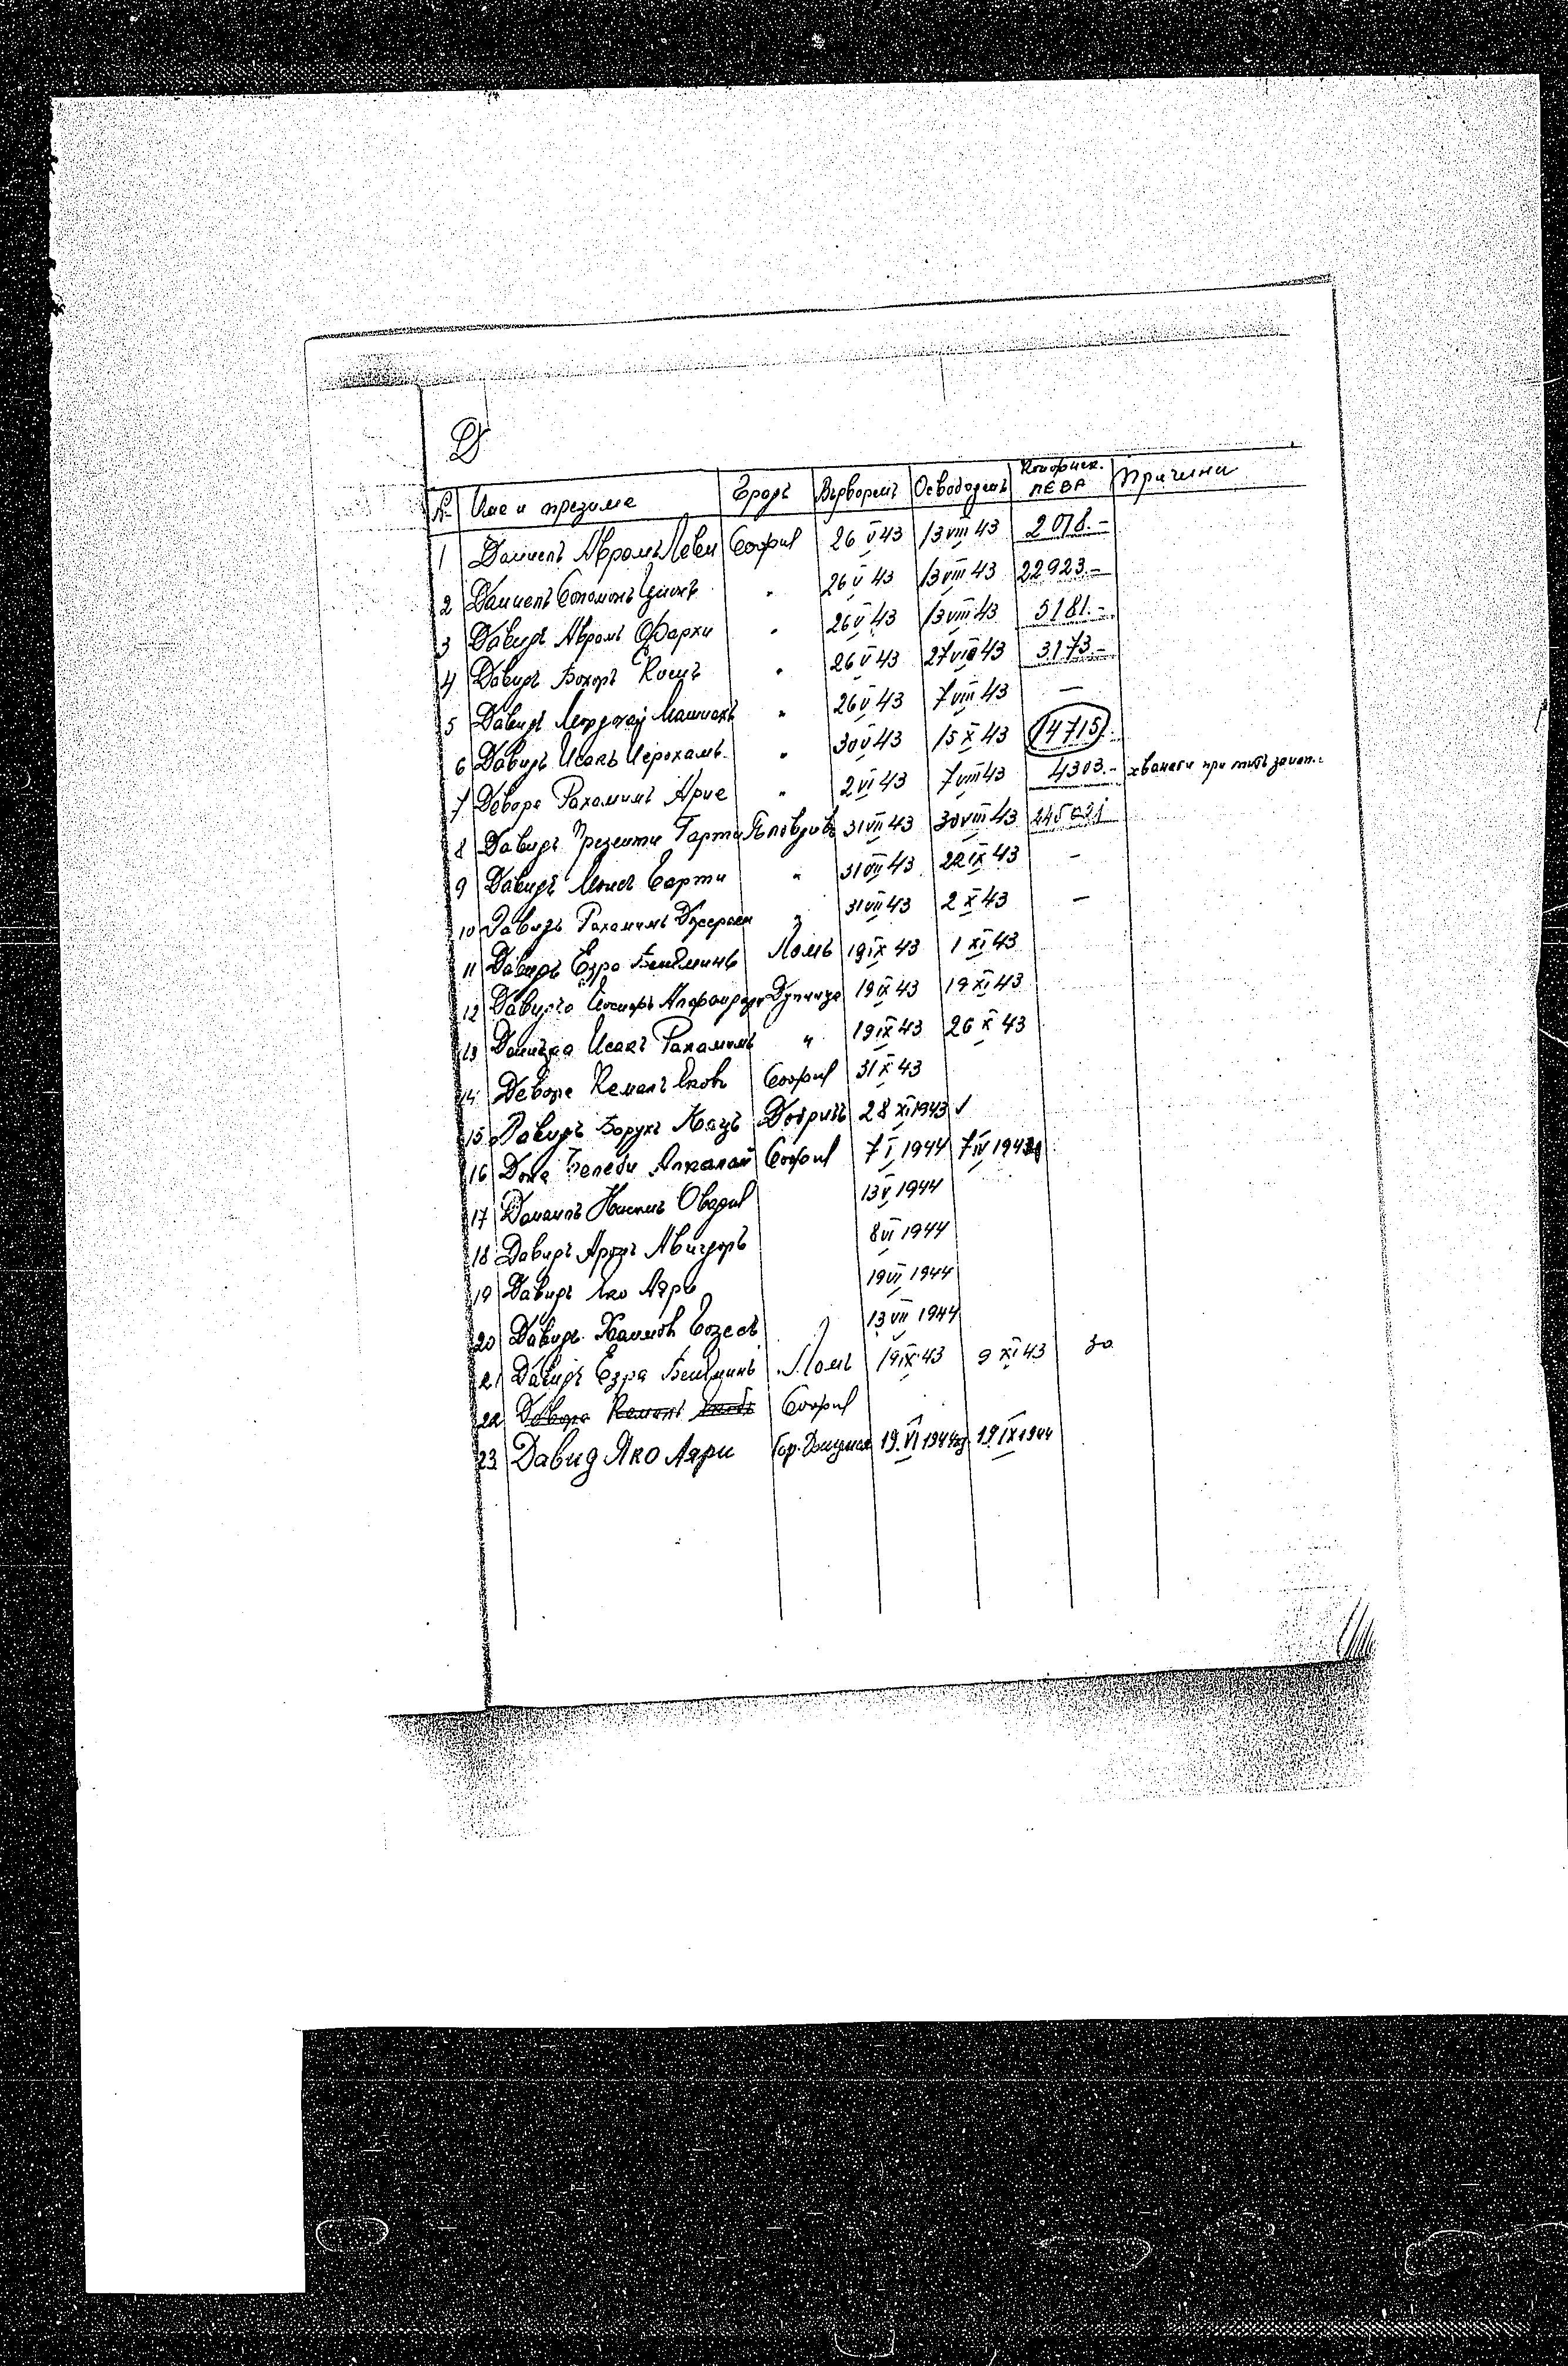 Д
№ Име и презиме Градъ Върворенъ Освободенъ Конфиск. ЛЕВА Причини
1 Даниелъ Аврамъ Леви София 26 V 43 13 VIII 43 2018.-
2 Даниелъ Соломонъ Ционъ " 26 V 43 13 VIII 43 22923.-
3 Давидъ Аврамъ Фархи " 26 V 43 13 VIII 43 5181.-
4 Давидъ Бохоръ " 26 V 43 27 VIII 43 3173.-
5 Давидъ Мордохай Машиахъ " 26 V 43 7 VIII 43 —
6 Давидъ Исакъ Иерохамъ " 30 V 43 15 X 43 14715.
7 Девора Рахамимъ Арие " 2 VI 43 7 VIII 43 4303.- хванати при
8 Давидъ Презенти Гарти Пловдивъ 31 VII 43 30 VIII 43
9 Давидъ Гарти " 31 VII 43 22 IX 43 -
10 Давидъ Рахамимъ " 31 VII 43 2 X 43 —
11 Давидъ Езра Бениаминъ Ломъ 19 IX 43 1 XI 43
12 Дупница 19 IX 43 19 XI 43
13 Исакъ Рахамимъ " 19 IX 43 26 X 43
14 Девора Кемалъ Яковъ София 31 X 43
15 Давидъ Барухъ Кацъ Добричъ 28 XI 1943 ✓
16 Челеби Алкалай София 7 I 1944 7 IV 194
17 Нисимъ Овадия 13 V 1944
18 Давидъ Авигдоръ 8 VI 1944
19 Давидъ Яко Аяри 19 VI 1944
20 Давидъ Хаимовъ 13 VII 1944
21 Давидъ Езра Бениаминъ Ломъ 19 IX 43 9 XI 43 30
22 Девора Кемалъ Яковъ София
23 Давид Яко Аяри Гор. Джумая 19. VI 1944 19. IX 1944